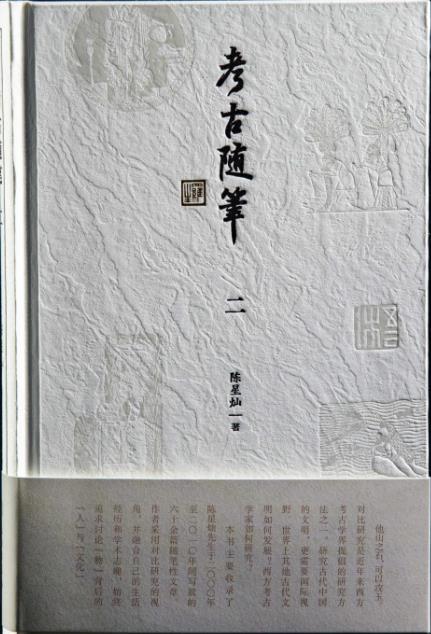 考古随筆
二
陈星灿一著
他山之石，可以攻玉。
对比研究是近年来西方
考古学界提倡的研究方
法之一。研究古代中国
的文明，更需要国际视
野。世界上其他古代文
明如何发展？西方考古
学家如何研究？
本书主要收录了
陈星灿先生于二〇〇〇年
至二〇一〇年间写就的
六十余篇随笔性文章。
作者采用对比研究的视
角，并融合自己的生活
经历和学术志趣，始终
追求讨论“物”背后的
“人”与“文化”。